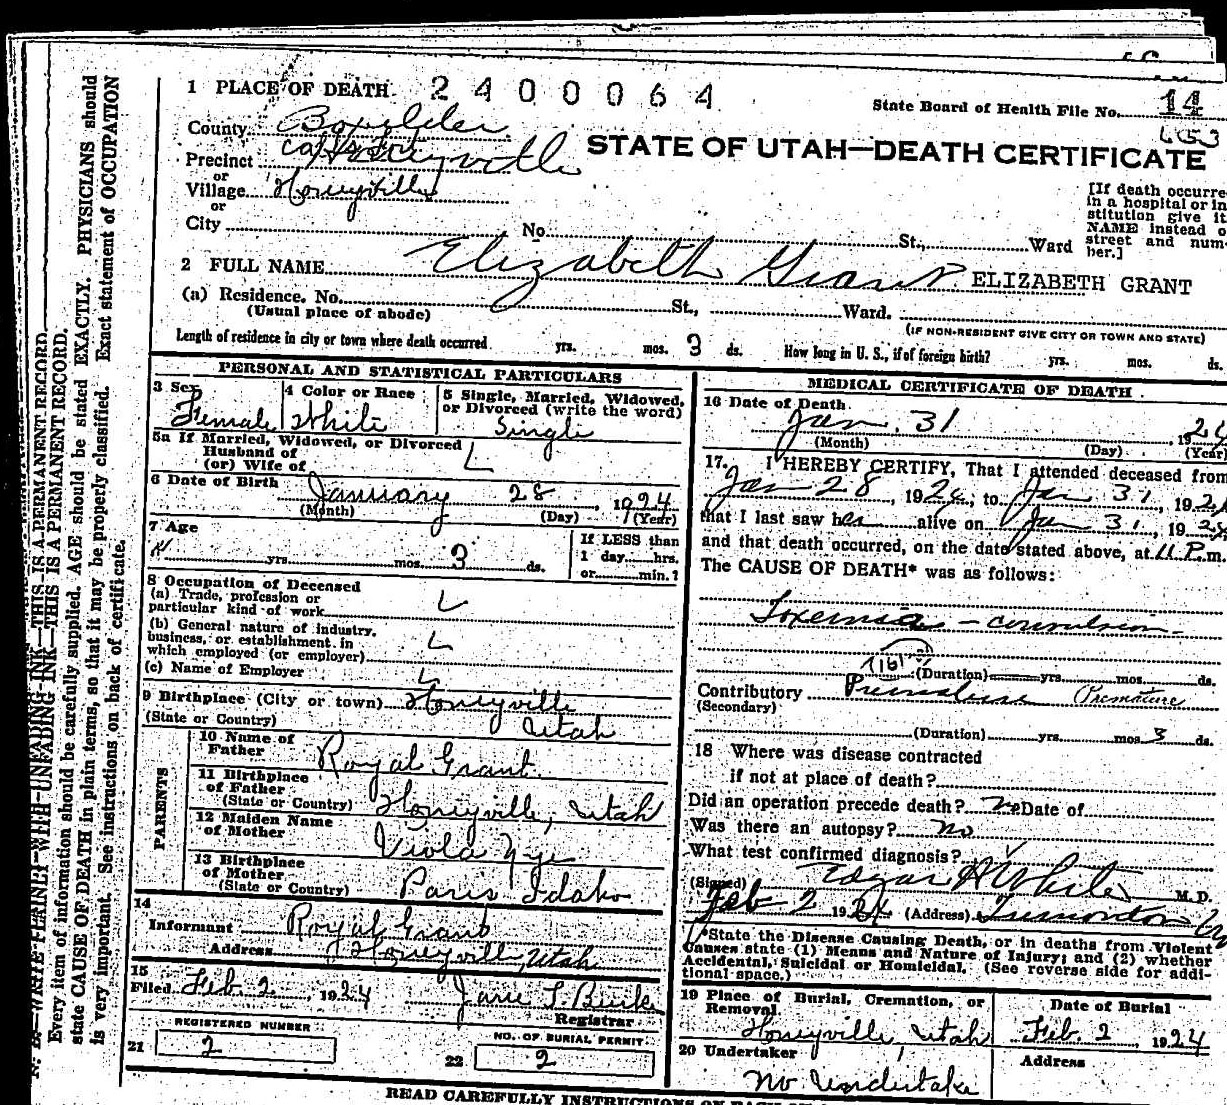 1 PLACE OF DEATH 2400064
State Board of Health File No. 14
County Boxelder
STATE OF UTAH—DEATH CERTIFICATE
Precinct Honeyville
or
Village Honeyville
or
City No. St., Ward
[If death occurre
in a hospital or in
stitution give it
NAME instead o
street and num-
ber.]
2 FULL NAME Elizabeth Grant ELIZABETH GRANT
(a) Residence. No. St., Ward.
(Usual place of abode)
(IF NON-RESIDENT GIVE CITY OR TOWN AND STATE)
Length of residence in city or town where death occurred yrs. mos. 3 ds. How long in U. S., if of foreign birth? yrs. mos. ds.
PERSONAL AND STATISTICAL PARTICULARS
3 Sex
Female
4 Color or Race
White
5 Single, Married, Widowed,
or Divorced (write the word)
Single
5a If Married, Widowed, or Divorced
Husband of
(or) Wife of
6 Date of Birth January 28, 1924
(Month) (Day) (Year)
7 Age
yrs. mos. 3 ds.
If LESS than
1 day hrs.
or min.?
8 Occupation of Deceased
(a) Trade, profession or
particular kind of work
(b) General nature of industry,
business, or establishment in
which employed (or employer)
(c) Name of Employer
9 Birthplace (City or town) Honeyville
(State or Country) Utah
PARENTS
10 Name of
Father Royal Grant
11 Birthplace
of Father
(State or Country) Honeyville, Utah
12 Maiden Name
of Mother Viola Nye
13 Birthplace
of Mother
(State or Country) Paris Idaho
14
Informant Royal Grant
Address Honeyville, Utah
15
Filed Feb 2, 1924
Registrar
REGISTERED NUMBER
21 2
NO. OF BURIAL PERMIT
22 2
MEDICAL CERTIFICATE OF DEATH
16 Date of Death
Jan. 31, 1924
(Month) (Day) (Year)
17. I HEREBY CERTIFY, That I attended deceased from
Jan 28, 1924, to Jan 31, 192
that I last saw her alive on Jan 31, 1924
and that death occurred, on the date stated above, at 11 P.m.
The CAUSE OF DEATH* was as follows:
Toxemia - convulsion
(Duration) yrs. mos. ds.
Contributory Premature Premature
(Secondary)
(Duration) yrs. mos. 3 ds.
18 Where was disease contracted
if not at place of death?
Did an operation precede death? no Date of
Was there an autopsy? no
What test confirmed diagnosis?
(Signed) Edgar H White M. D.
Feb 2 1924 (Address) Tremonton
*State the Disease Causing Death, or in deaths from Violent
Causes state (1) Means and Nature of Injury; and (2) whether
Accidental, Suicidal or Homicidal. (See reverse side for addi-
tional space.)
19 Place of Burial, Cremation, or
Removal
Honeyville, Utah
Date of Burial
Feb. 2, 1924
20 Undertaker
No Undertaker
Address
READ CAREFULLY INSTRUCTIONS ON BACK OF
N. B.—WRITE PLAINLY WITH UNFADING INK—THIS IS A PERMANENT RECORD.
Every item of information should be carefully supplied. AGE should be stated EXACTLY. PHYSICIANS should
state CAUSE OF DEATH in plain terms, so that it may be properly classified. Exact statement of OCCUPATION
is very important. See instructions on back of certificate.